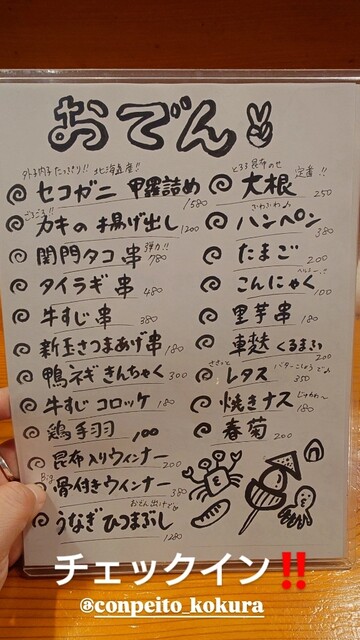 おでん
外子内子たっぷり!! 北海道産!!
セコガニ 甲羅詰め 1580
ごろごろ!!
カキの揚げ出し 1200
弾力!!
関門タコ串 780
タイラギ串 480
牛すじ串 380
新玉さつまあげ串 180
鴨ネギきんちゃく 300
牛すじコロッケ 180
鶏手羽 100
昆布入りウィンナー 200
Big
骨付きウィンナー 380
おでん出汁で
うなぎひつまぶし 1280
とろろ昆布のせ 定番!!
大根 250
ふわふわ
ハンペン 380
たまご 200
こんにゃく 100
里芋串 180
車麩くるまふ 200
バターこしょうで
レタス 350
じゅわ〜
焼きナス 180
春菊 200
チェックイン‼️
@conpeito_kokura